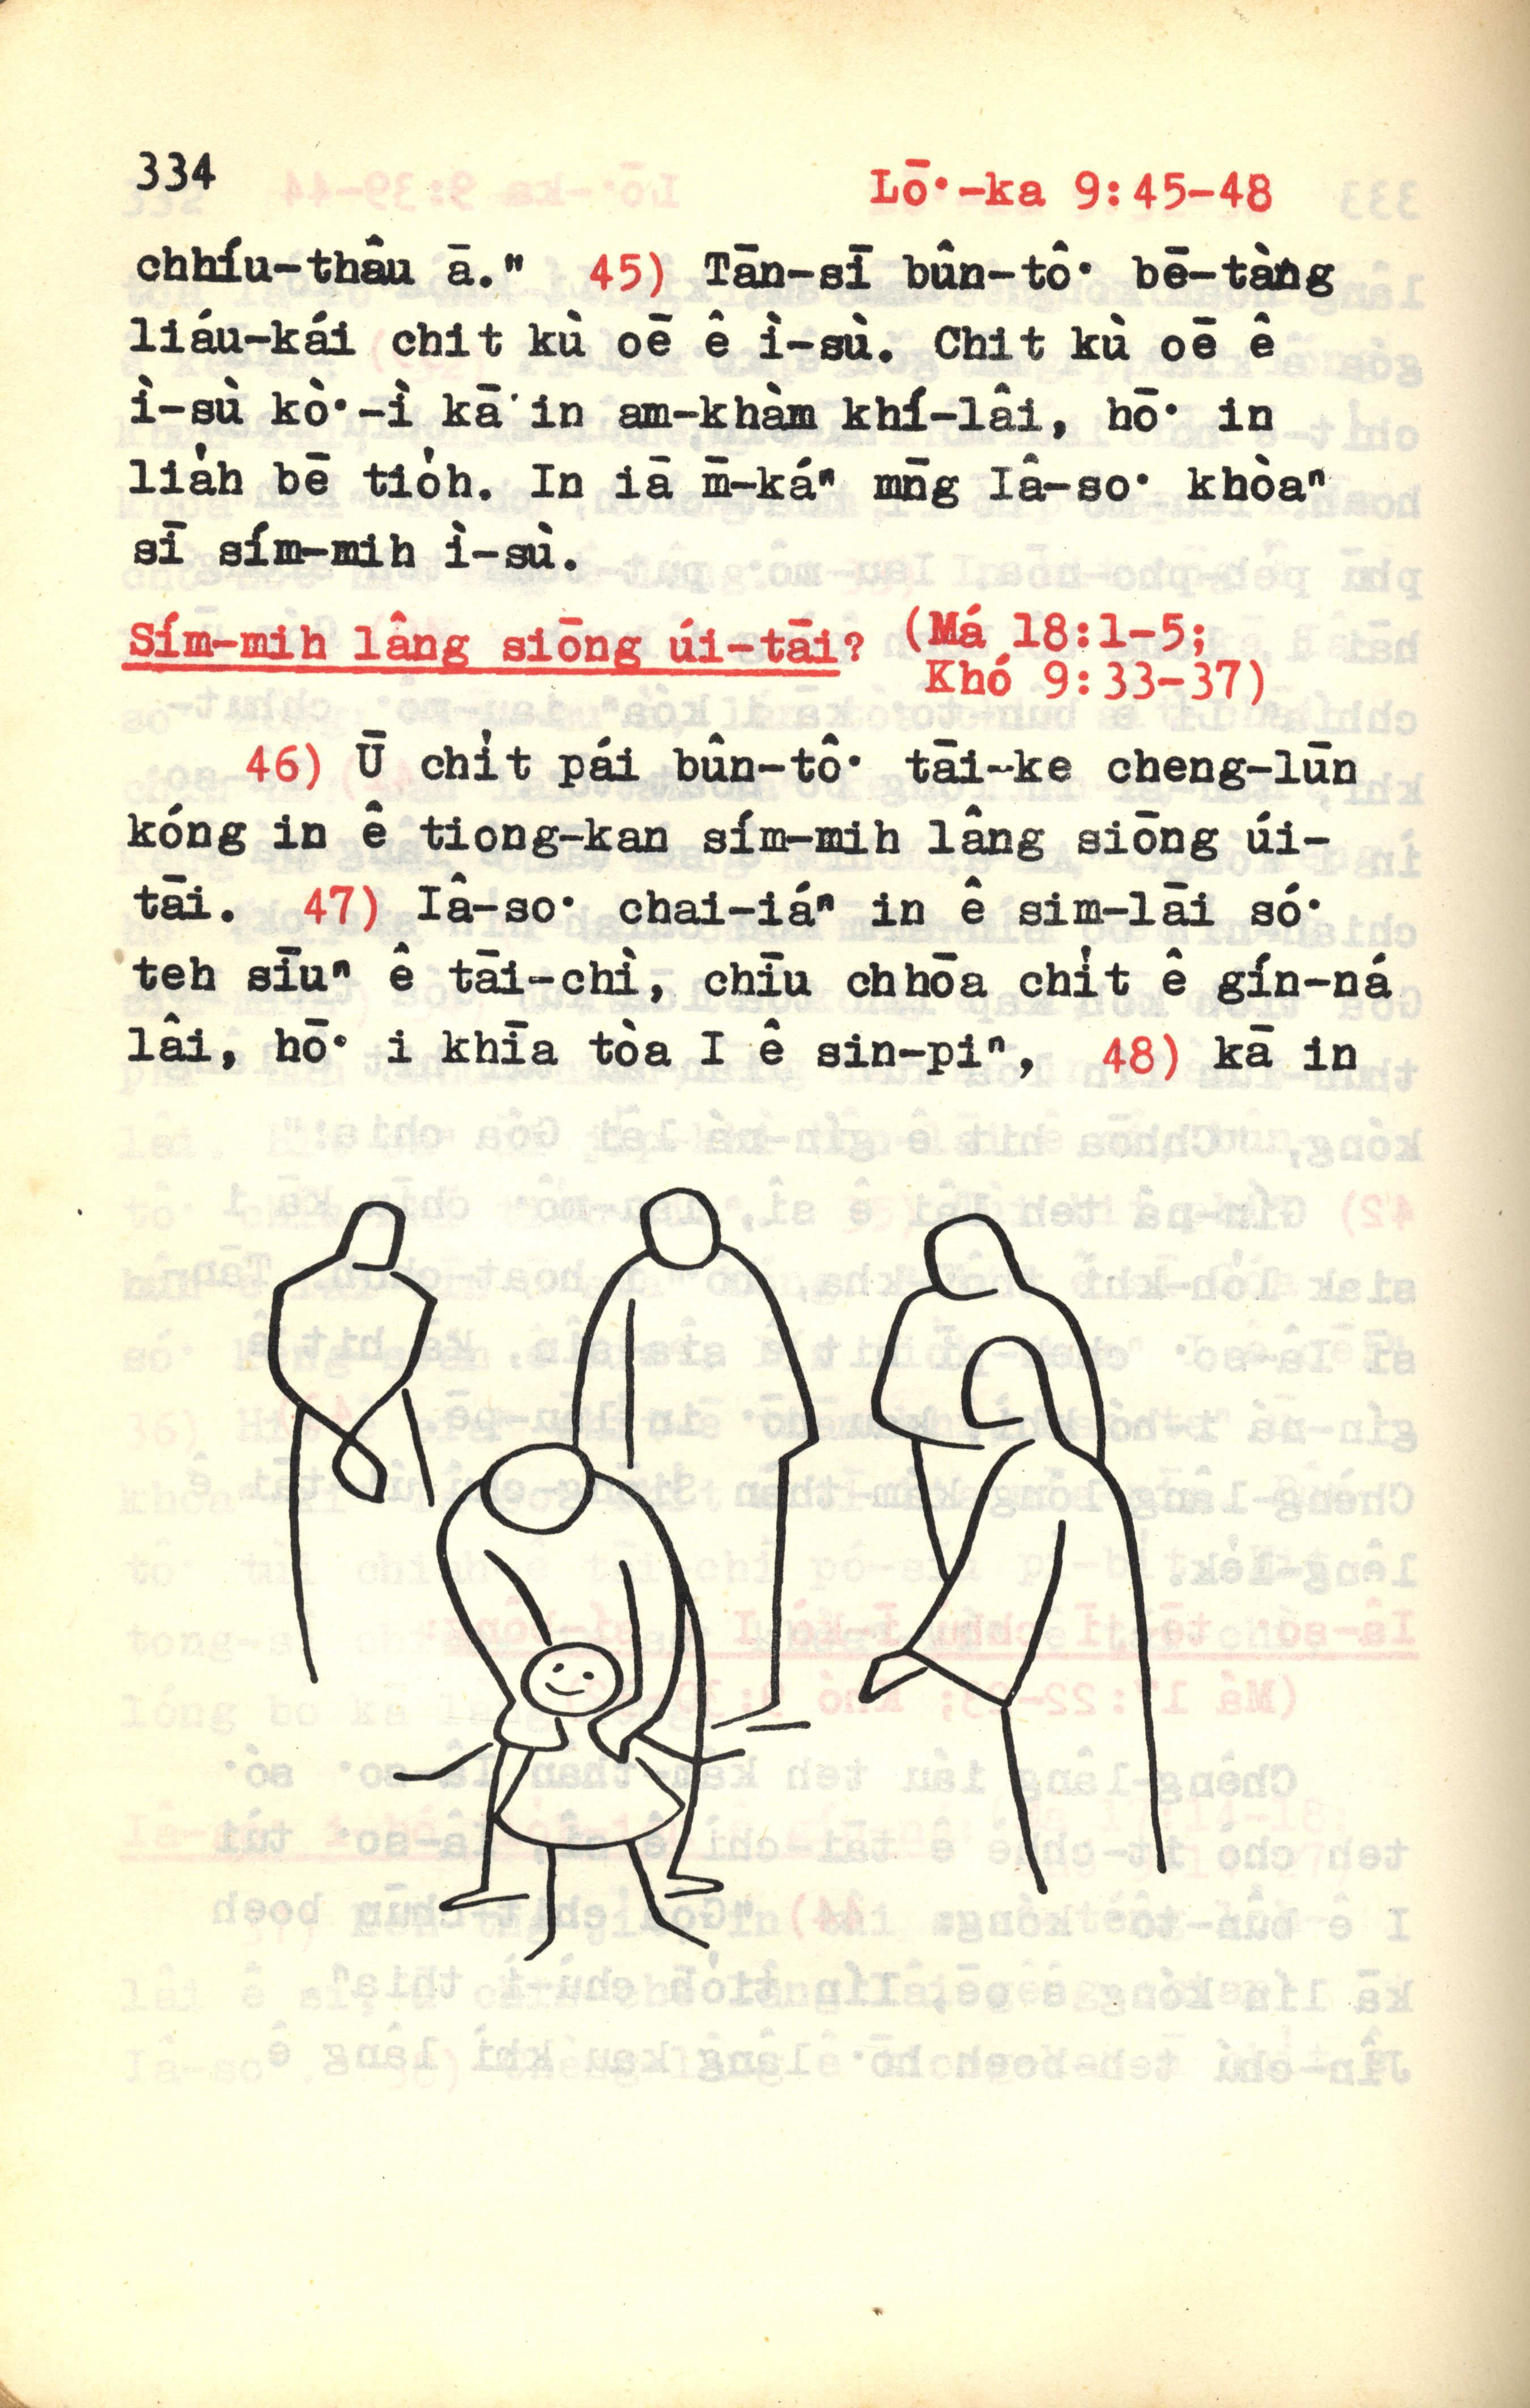 334
Lō͘-ka 9:45-48
chhíu-thâu ā." 45) Tān-sī bûn-tô͘ bē-tàng
liáu-kái chit kù oē ê ì-sù. Chit kù oē ê
ì-sù kò͘-ì kā in am-khàm khí-lâi, hō͘ in
lia̍h bē tio̍h. In iā m̄-káⁿ mn̄g Iâ-so͘ khòaⁿ
sī sím-mih ì-sù.
Sím-mih lâng siōng úi-tāi? (Má 18:1-5;
Khó 9:33-37)
46) Ū chi̍t pái bûn-tô͘ tāi-ke cheng-lūn
kóng in ê tiong-kan sím-mih lâng siōng úi-
tāi. 47) Iâ-so͘ chai-iáⁿ in ê sim-lāi só͘
teh sīuⁿ ê tāi-chì, chīu chhōa chi̍t ê gín-ná
lâi, hō͘ i khīa tòa I ê sin-piⁿ, 48) kā in